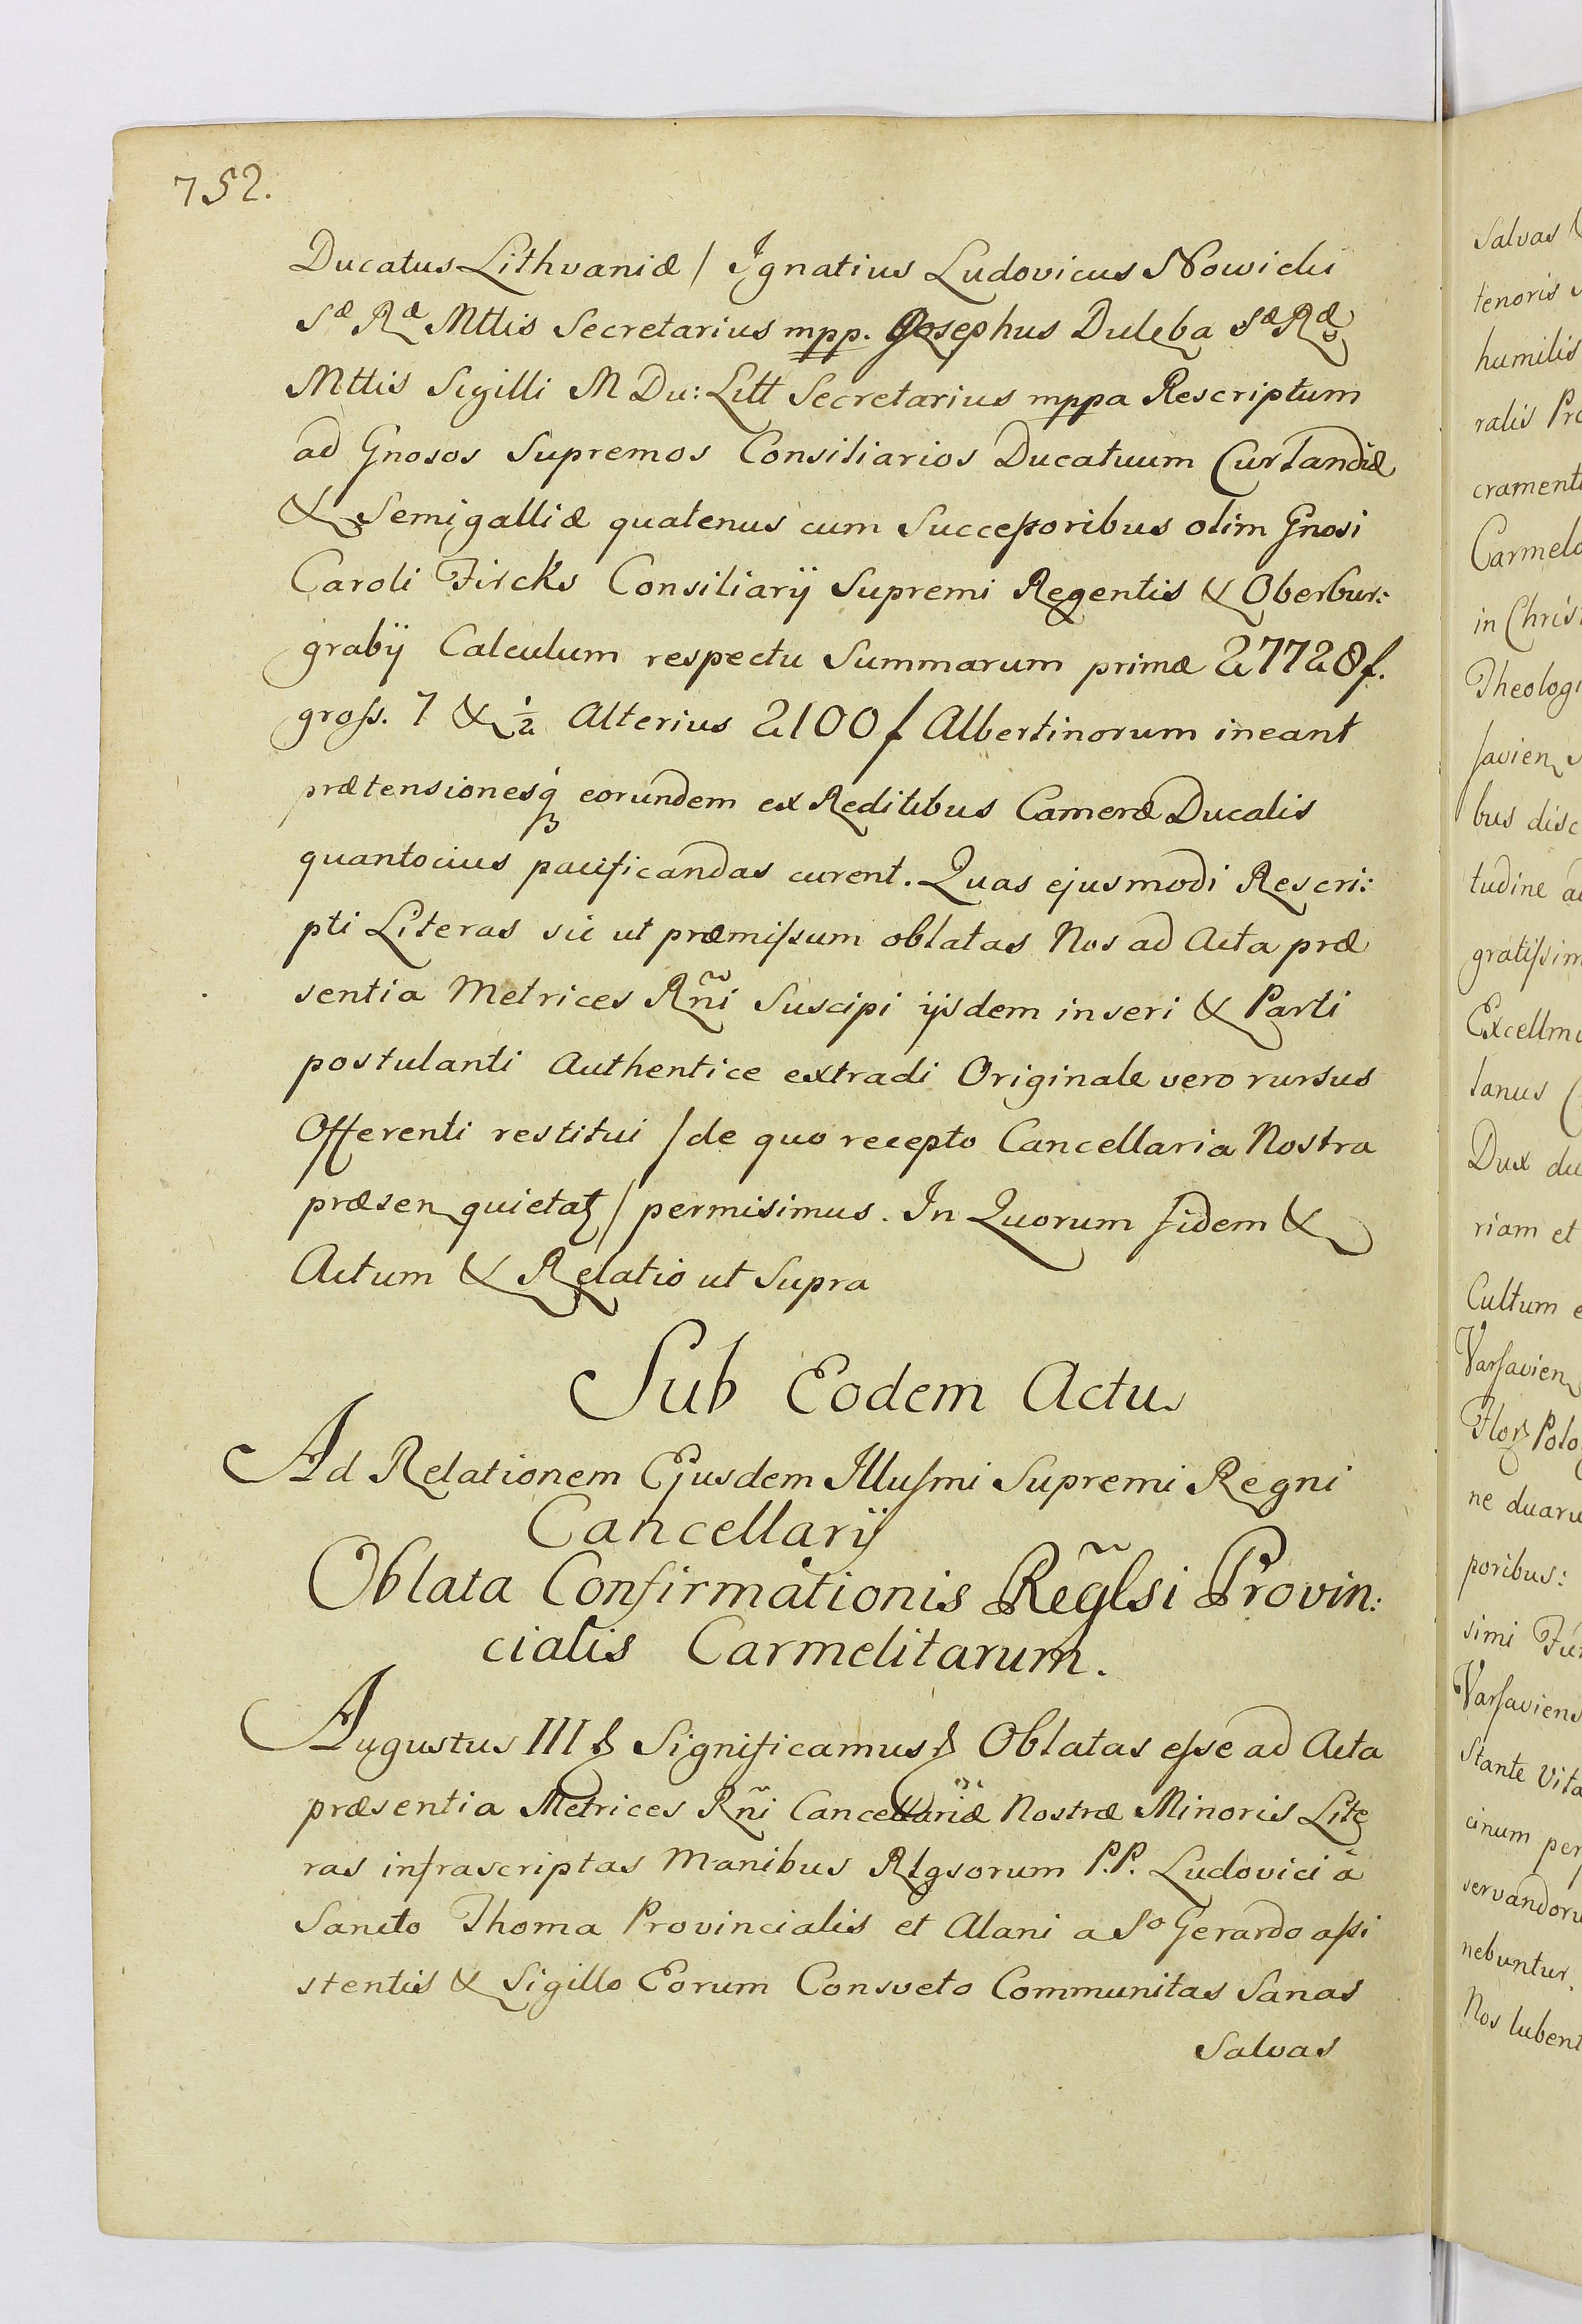 752.
Ducatus Lithvaniæ / Ignatius Ludovicus Nowicki
Sæ Ræ Mttis Secretarius mpp. Josephus Duleba Sæ Ræ
Mttis Sigilli M Du: Litt Secretarius mppa Rescriptum
ad Gnosos Supremos Consiliarios Ducatuum Curlandiæ
& Semigalliæ quatenus cum Successoribus olim Gnosi
Caroli Fircks Consiliarij Supremi Regentis & Oberbur:
grabij Calculum respectu Summarum primæ 27728 f.
gross. 7 & ½ Alterius 2100 f Albertinorum ineant
prætensionesq́ eorundem ex Reditibus Cameræ Ducalis
quantocius pacificandas curent. Quas ejusmodi Rescri:
pti Literas sic ut præmissum oblatas Nos ad Acta præ
sentia Metrices Rñi Suscipi ijsdem inseri & Parti
postulanti Authentice extradi Originale vero rursus
Offerenti restitui / de quo recepto Cancellaria Nostra
præsen quietat / permisimus. In Quorum fidem &
Actum & Relatio ut Supra
Sub Eodem Actu
Ad Relationem Ejusdem Illusmi Supremi Regni
Cancellarij
Oblata Confirmationis Reg̃lsi Provin:
cialis Carmelitarum.
Augustus III Significamus Oblatas esse ad Acta
præsentia Metrices Rñi Cancellariæ Nostræ Minoris Lite
ras infrascriptas Manibus Rlgsorum P.P. Ludovici à
Sancto Thoma Provincialis et Alani a So Gerardo assi
stentis & Sigillo Eorum Consveto Communitas Sanas
Salvas
Salvas
tenoris
humilis
ralis
in
bus
tudine
Dux
riam et
Cultum
Polo
ne
poribus:
simi
Stante
cinum
nebuntur.
Nos